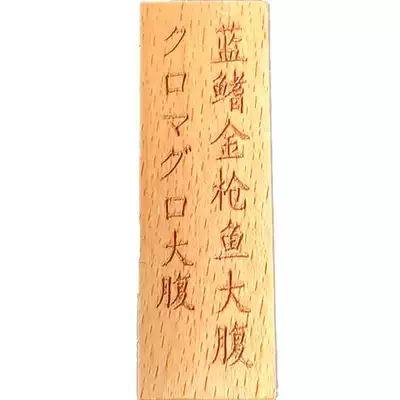 蓝鳍金枪鱼大腹
クロマグロ大腹